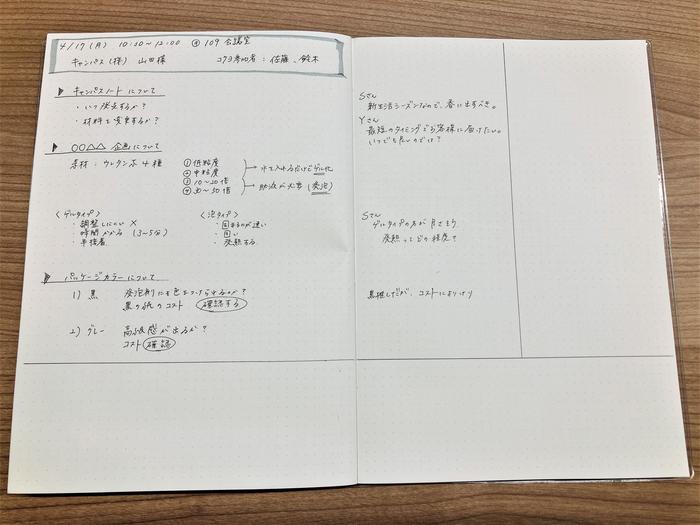 4/17(月) 10:30~12:00 @ 109 会議室
キャンパス(株) 山田様 コクヨ参加者:佐藤、鈴木
▶ キャンパスノートについて
・いつ発売するか?
・材料を変更するか?
▶ ○○△△ 企画について
素材:ウレタンボ4種
① 低粘度
② 中粘度
③ 10~20倍
④ 30~50倍
水を入れるだけでゲル化
助液が必要(発泡)
〈ゲルタイプ〉
・調整しにくい ×
・時間かかる (3~5分)
・半接着
〈泡タイプ〉
・固まるのが速い
・固い
・発熱する
▶ パッケージカラーについて
1) 黒 発泡剤にも色をつけられるのか?
黒の紙のコスト 確認する
2) グレー 高級感が出るか?
コスト 確認
Sさん
新生活シーズンなので、春に出すべき。
Yさん
最強のタイミングでお客様に届けたい。
いつでも良いのでは?
Sさん
ゲルタイプの方が良さそう
発熱ってどの程度?
黒推しだが、コストによりけり